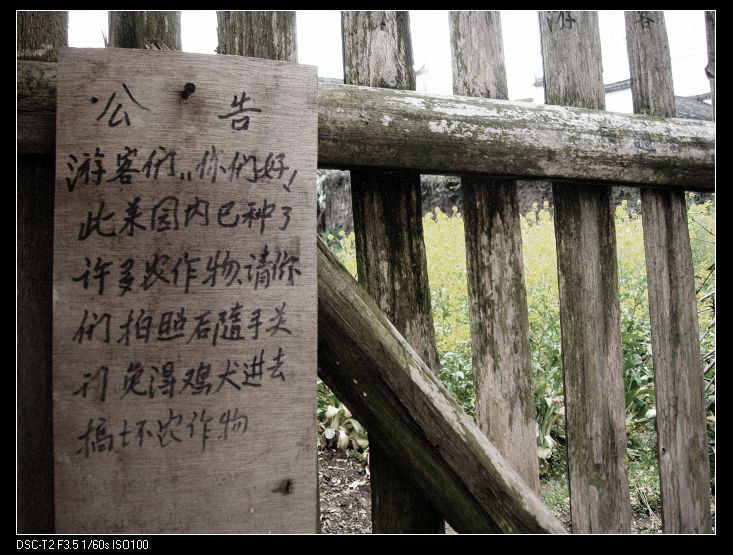 游 客
公 告
游客们,,你们好!
此菜园内已种了
许多农作物,请你
们拍照后随手关
门免得鸡犬进去
搞坏农作物
DSC-T2 F3.5 1/60s ISO100